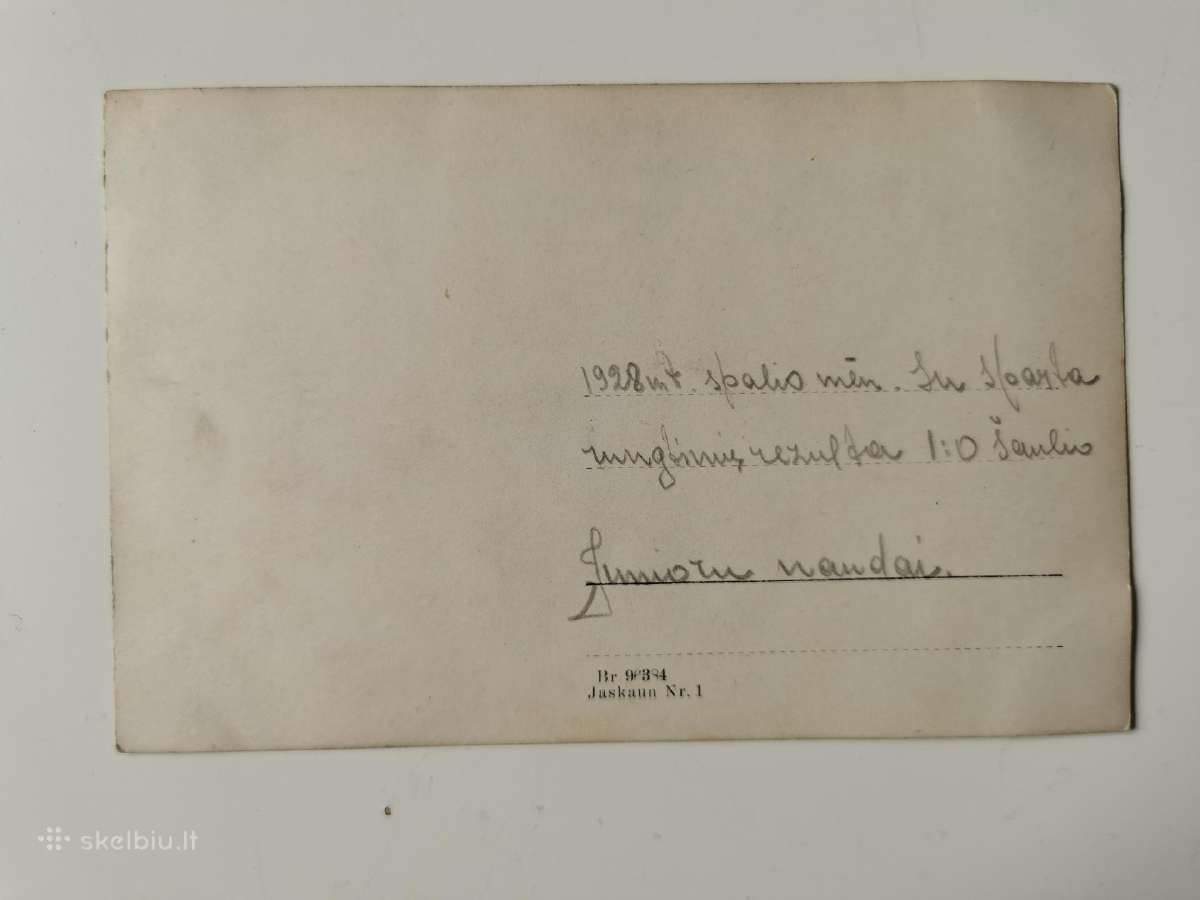 1928 mt. spalio mėn. Su Sparta
rungtinių rezulta 1:0 Šaulio
Junioru naudai.
Br 98384
Jaskaun Nr. 1
skelbiu.lt